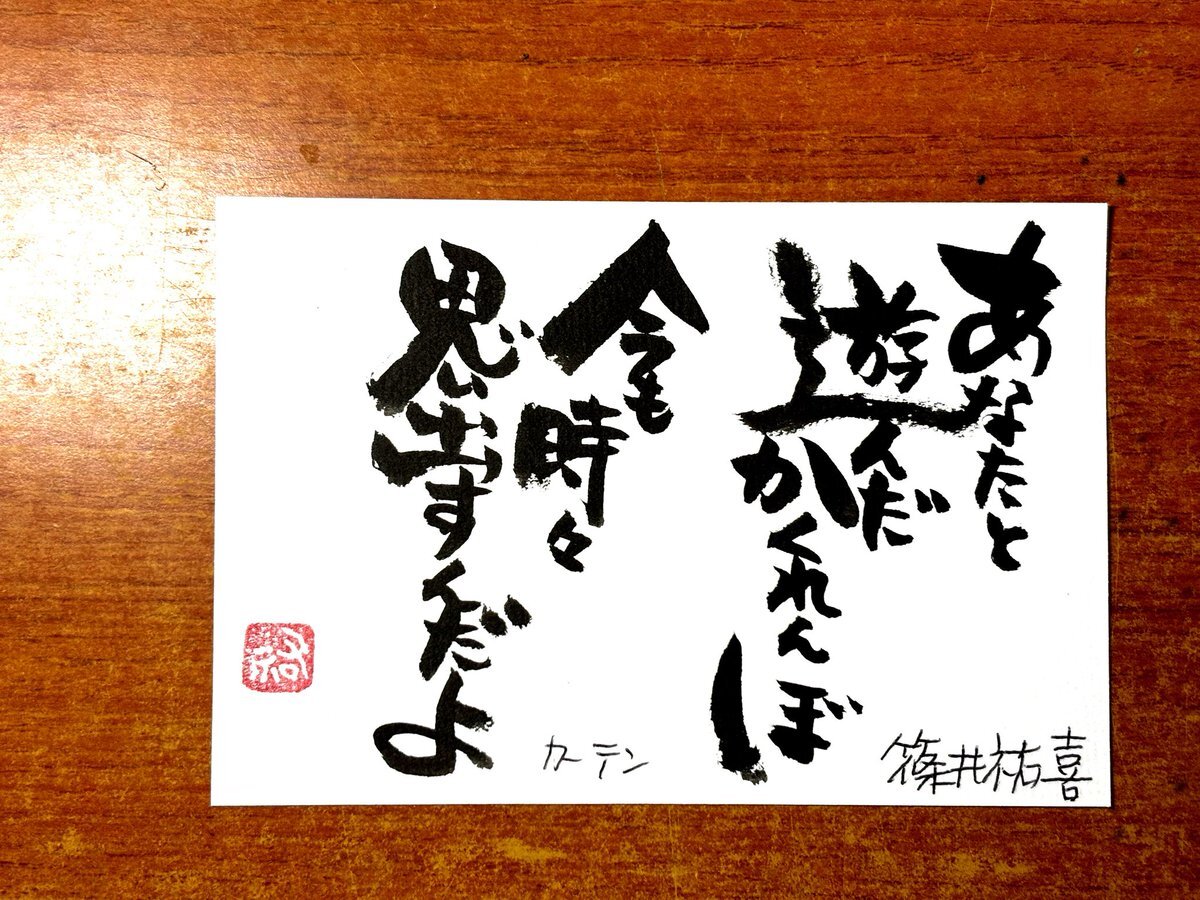 あなたと
遊んだ
かくれんぼ
今も
時々
思い出すんだよ
カーテン
篠井祐喜